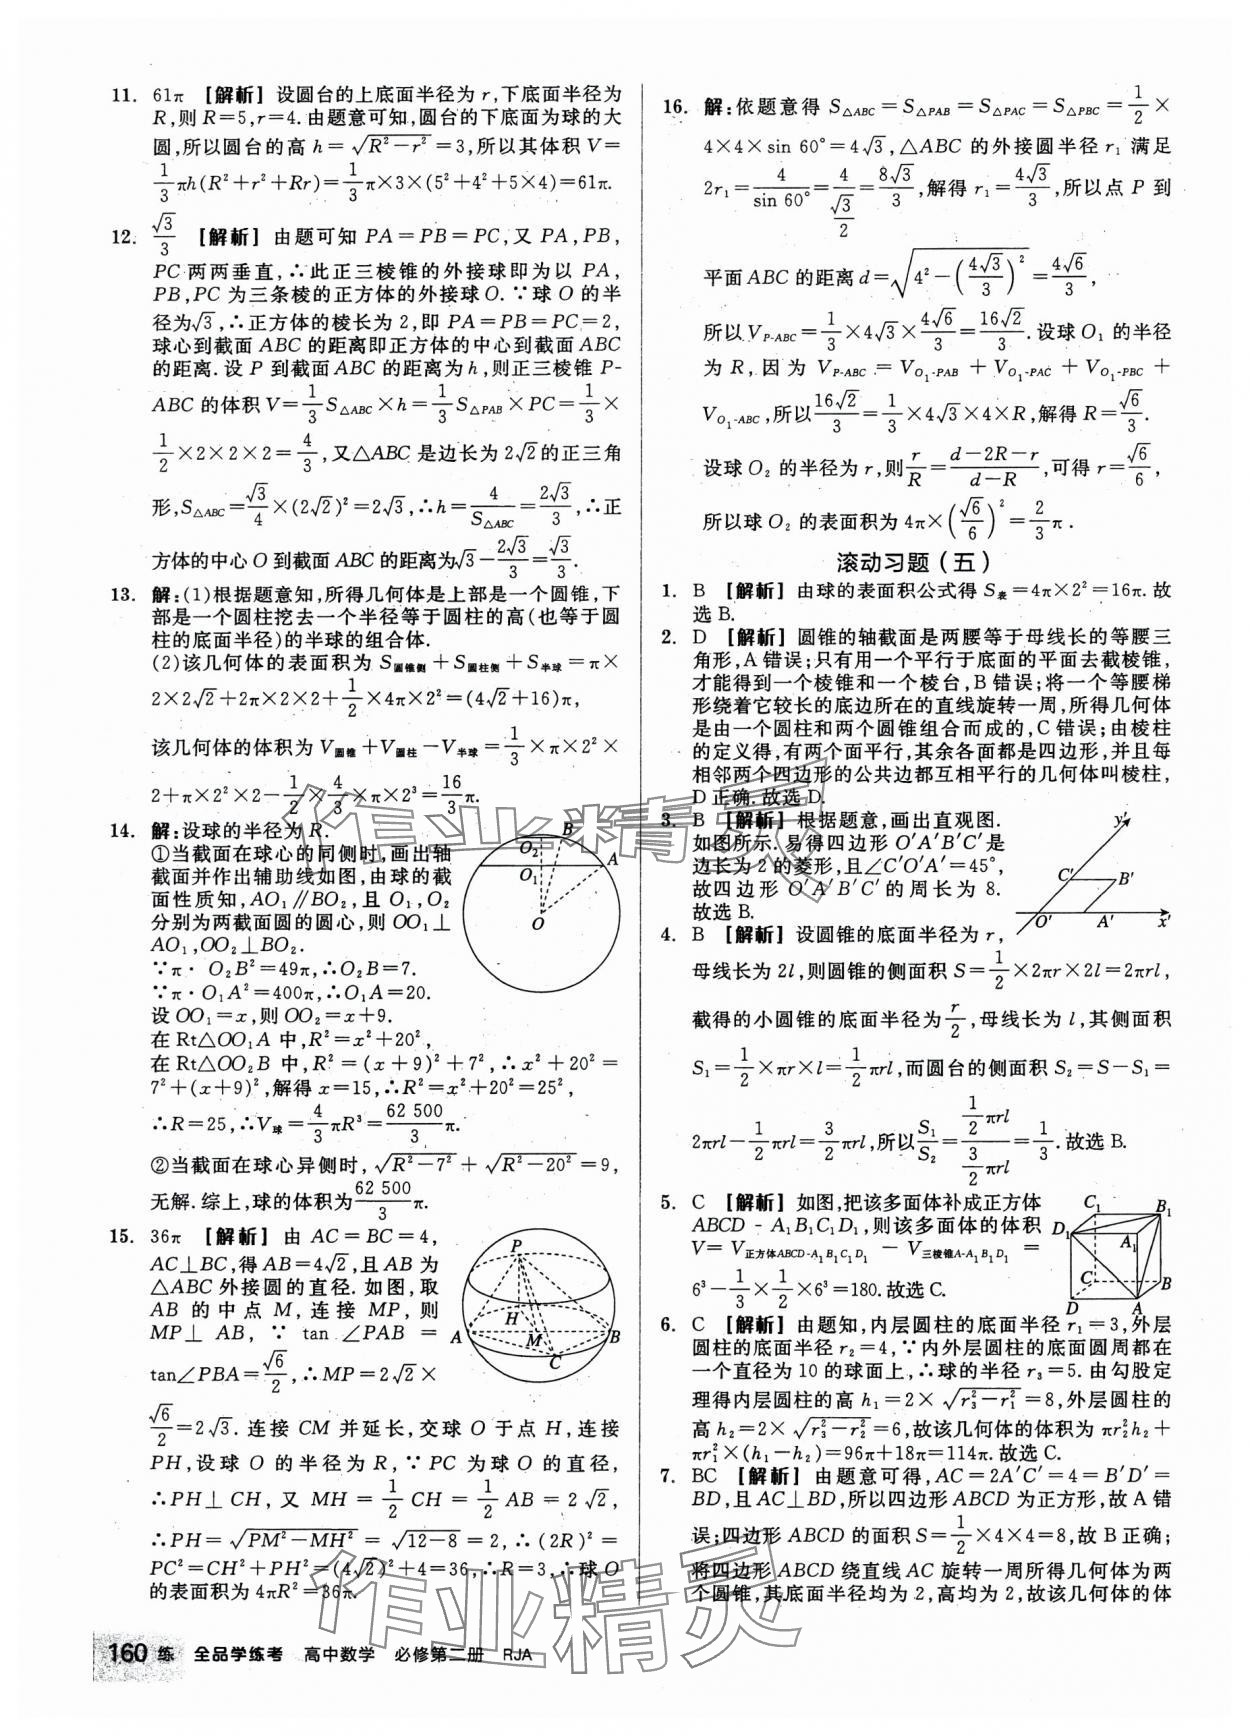 11. 61π 【解析】设圆台的上底面半径为 r,下底面半径为
R,则 R=5,r=4.由题意可知,圆台的下底面为球的大
圆,所以圆台的高 h=√(R²-r²)=3,所以其体积 V=
1/3πh(R²+r²+Rr)=1/3π×3×(5²+4²+5×4)=61π.
12. √3/3 【解析】由题可知 PA=PB=PC,又 PA,PB,
PC 两两垂直,∴此正三棱锥的外接球即为以 PA,
PB,PC 为三条棱的正方体的外接球 O.∵球 O 的半
径为√3,∴正方体的棱长为 2,即 PA=PB=PC=2,
球心到截面 ABC 的距离即正方体的中心到截面 ABC
的距离.设 P 到截面 ABC 的距离为 h,则正三棱锥 P-
ABC 的体积 V=1/3S△ABC×h=1/3S△PAB×PC=1/3×
1/2×2×2×2=4/3,又△ABC 是边长为 2√2的正三角
形,S△ABC=√3/4×(2√2)²=2√3,∴h=4/S△ABC=2√3/3,∴正
方体的中心 O 到截面 ABC 的距离为√3-2√3/3=√3/3.
13. 解:(1)根据题意知,所得几何体是上部是一个圆锥,下
部是一个圆柱挖去一个半径等于圆柱的高(也等于圆
柱的底面半径)的半球的组合体.
(2)该几何体的表面积为 S圆锥侧+S圆柱侧+S半球=π×
2×2√2+2π×2×2+1/2×4π×2²=(4√2+16)π,
该几何体的体积为 V圆锥+V圆柱-V半球=1/3×π×2²×
2+π×2²×2-1/2×4/3×π×2³=16/3π.
14. 解:设球的半径为 R.
①当截面在球心的同侧时,画出轴
截面并作出辅助线如图,由球的截
面性质知,AO₁∥BO₂,且 O₁,O₂
分别为两截面圆的圆心,则 OO₁⊥
AO₁,OO₂⊥BO₂.
∵π·O₂B²=49π,∴O₂B=7.
∵π·O₁A²=400π,∴O₁A=20.
设 OO₁=x,则 OO₂=x+9.
在 Rt△OO₁A 中,R²=x²+20²,
在 Rt△OO₂B 中,R²=(x+9)²+7²,∴x²+20²=
7²+(x+9)²,解得 x=15,∴R²=x²+20²=25²,
∴R=25,∴V球=4/3πR³=62 500/3π.
②当截面在球心异侧时,√(R²-7²)+√(R²-20²)=9,
无解.综上,球的体积为62 500/3π.
B
O₂
A
O₁
O
15. 36π 【解析】由 AC=BC=4,
AC⊥BC,得 AB=4√2,且 AB 为
△ABC 外接圆的直径.如图,取
AB 的中点 M,连接 MP,则
MP⊥AB,∵tan∠PAB=
tan∠PBA=√6/2,∴MP=2√2×
√6/2=2√3.连接 CM 并延长,交球 O 于点 H,连接
PH,设球 O 的半径为 R,∵PC 为球 O 的直径,
∴PH⊥CH,又 MH=1/2CH=1/2AB=2√2,
∴PH=√(PM²-MH²)=√(12-8)=2,∴(2R)²=
PC²=CH²+PH²=(4√2)²+4=36,∴R=3,∴球 O
的表面积为 4πR²=36π.
P
H
A
M
B
C
16. 解:依题意得 S△ABC=S△PAB=S△PAC=S△PBC=1/2×
4×4×sin 60°=4√3,△ABC 的外接圆半径 r₁ 满足
2r₁=4/sin 60°=4/(√3/2)=8√3/3,解得 r₁=4√3/3,所以点 P 到
平面 ABC 的距离 d=√(4²-(4√3/3)²)=4√6/3,
所以 V_P-ABC=1/3×4√3×4√6/3=16√2/3.设球 O₁ 的半径
为 R,因为 V_P-ABC=V_O₁-PAB+V_O₁-PAC+V_O₁-PBC+
V_O₁-ABC,所以16√2/3=1/3×4√3×4×R,解得 R=√6/3.
设球 O₂ 的半径为 r,则r/R=(d-2R-r)/(d-R),可得 r=√6/6,
所以球 O₂ 的表面积为 4π×(√6/6)²=2/3π.
滚动习题(五)
1. B 【解析】由球的表面积公式得 S表=4π×2²=16π.故
选 B.
2. D 【解析】圆锥的轴截面是两腰等于母线长的等腰三
角形,A 错误;只有用一个平行于底面的平面去截棱锥,
才能得到一个棱锥和一个棱台,B 错误;将一个等腰梯
形绕着它较长的底边所在的直线旋转一周,所得几何体
是由一个圆柱和两个圆锥组合而成的,C 错误;由棱柱
的定义得,有两个面平行,其余各面都是四边形,并且每
相邻两个四边形的公共边都互相平行的几何体叫棱柱,
D 正确.故选 D.
3. B 【解析】根据题意,画出直观图.
如图所示.易得四边形 O′A′B′C′是
边长为 2 的菱形,且∠C′O′A′=45°,
故四边形 O′A′B′C′的周长为 8.
故选 B.
y′
C′
B′
O′
A′
x′
4. B 【解析】设圆锥的底面半径为 r,
母线长为 2l,则圆锥的侧面积 S=1/2×2πr×2l=2πrl,
截得的小圆锥的底面半径为r/2,母线长为 l,其侧面积
S₁=1/2×πr×l=1/2πrl,而圆台的侧面积 S₂=S-S₁=
2πrl-1/2πrl=3/2πrl,所以S₁/S₂=(1/2πrl)/(3/2πrl)=1/3.故选 B.
5. C 【解析】如图,把该多面体补成正方体
ABCD-A₁B₁C₁D₁,则该多面体的体积
V=V正方体ABCD-A₁B₁C₁D₁-V三棱锥A-A₁B₁D₁=
6³-1/3×1/2×6³=180.故选 C.
C₁
B₁
D₁
A₁
C
B
D
A
6. C 【解析】由题知,内层圆柱的底面半径 r₁=3,外层
圆柱的底面半径 r₂=4,∵内外层圆柱的底面圆周都在
一个直径为 10 的球面上,∴球的半径 r₃=5.由勾股定
理得内层圆柱的高 h₁=2×√(r₃²-r₁²)=8,外层圆柱的
高 h₂=2×√(r₃²-r₂²)=6,故该几何体的体积为 πr₂²h₂+
πr₁²×(h₁-h₂)=96π+18π=114π.故选 C.
7. BC 【解析】由题意可得,AC=2A′C′=4=B′D′=
BD,且 AC⊥BD,所以四边形 ABCD 为正方形,故 A 错
误;四边形 ABCD 的面积 S=1/2×4×4=8,故 B 正确;
将四边形 ABCD 绕直线 AC 旋转一周所得几何体为两
个圆锥,其底面半径均为 2,高均为 2,故该几何体的体
作业精灵
作业精灵
160 练 全品学练考 高中数学 必修第二册 RJA